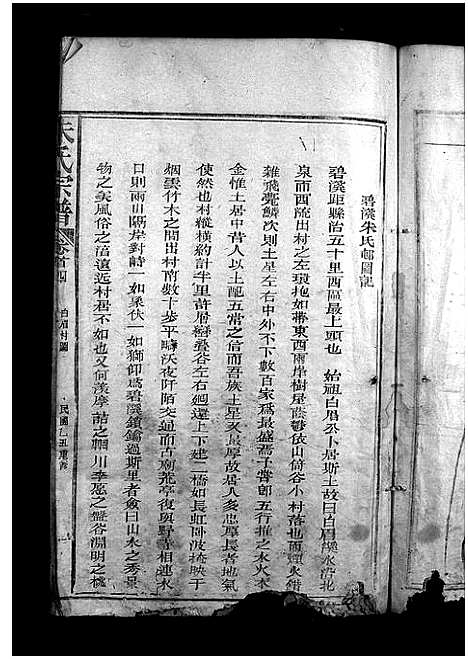 碧溪朱氏邨圖記
碧溪距縣治五十里西區最上頭也　始祖白眉公卜居斯土故曰白眉溪水沿北
泉而西流出村之左環抱如帶東西兩岸樹屋蔭鬱依山倚谷小村落也而煙火錯
雜飛甍鱗次則土星左右中外不下數百家為最盛焉予嘗即五行推之水火木
金惟土居中昔人以土配五常之信而吾族土星又最厚故居人多忠厚長者地氣
使然也村縱橫約計半里許層巒叠谷左右廻還上下建二橋如長虹卧波掩映于
烟雲竹木之間出村南數十步平疇沃夜阡陌交通而古廟荒亭復與野寺相連水
口則兩山隔岸對詩一如象伏一如獅仰為碧溪鎖鑰過斯里者僉曰山水之秀景
物之美風俗之湻遠近村居不如也又何羨摩詰之輞川李愿之盤谷淵明之桃
朱氏宗譜
卷首四
白眉村圖
民國乙丑重修